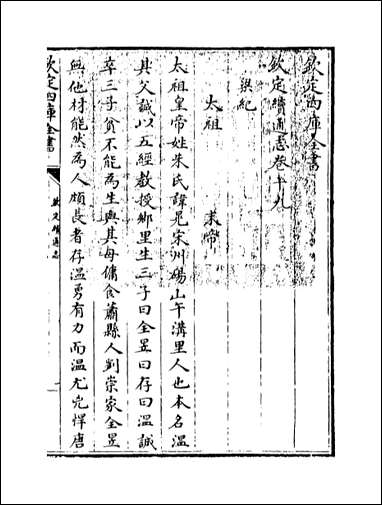 欽定四庫全書
欽定續通志卷十九
梁紀
太祖 末帝
太祖皇帝姓朱氏諱晃宋州碭山午溝里人也本名溫
其父誠以五經教授鄉里生三子曰全昱曰存曰溫誠
卒三子貧不能為生與其母傭食蕭縣人劉崇家全昱
無他材能然為人頗長者存溫勇有力而溫尤兇悍唐
欽定四庫全書
欽定續通志